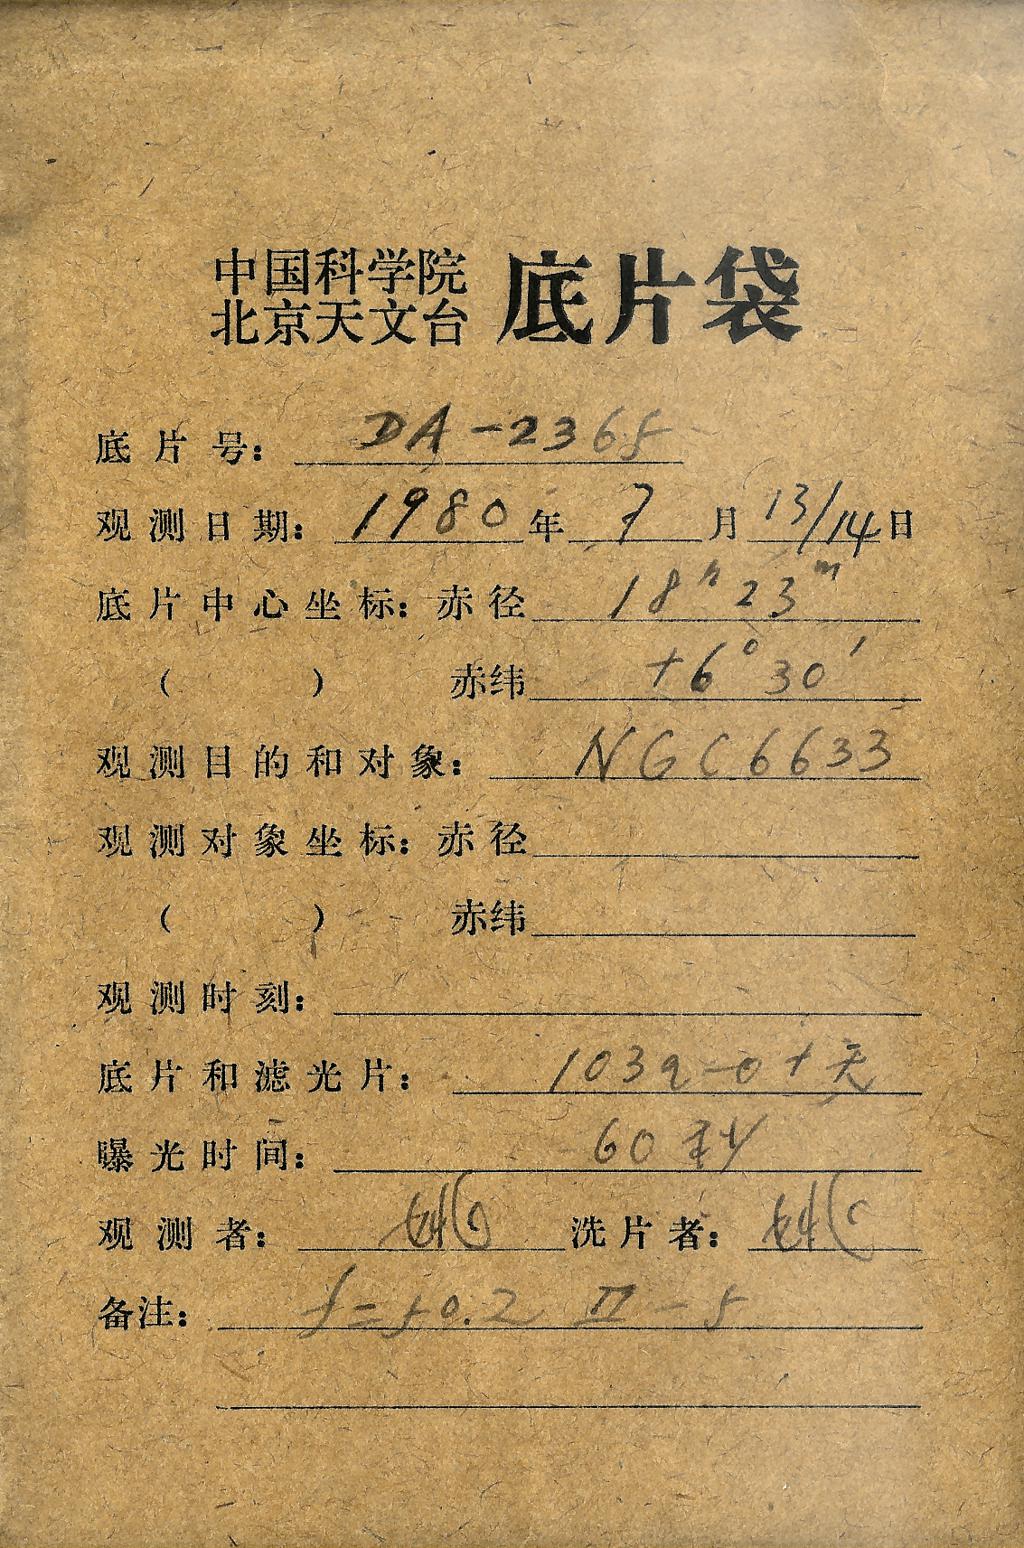 中国科学院
北京天文台 底片袋
底片号: DA-2365
观测日期: 1980年 7 月 13/14日
底片中心坐标: 赤径 18h23m
( ) 赤纬 +6°30′
观测目的和对象: NGC6633
观测对象坐标: 赤径
( ) 赤纬
观测时刻:
底片和滤光片: 103a-0+无
曝光时间: 60秒
观测者: 洗片者:
备注: f=50.2 II-5